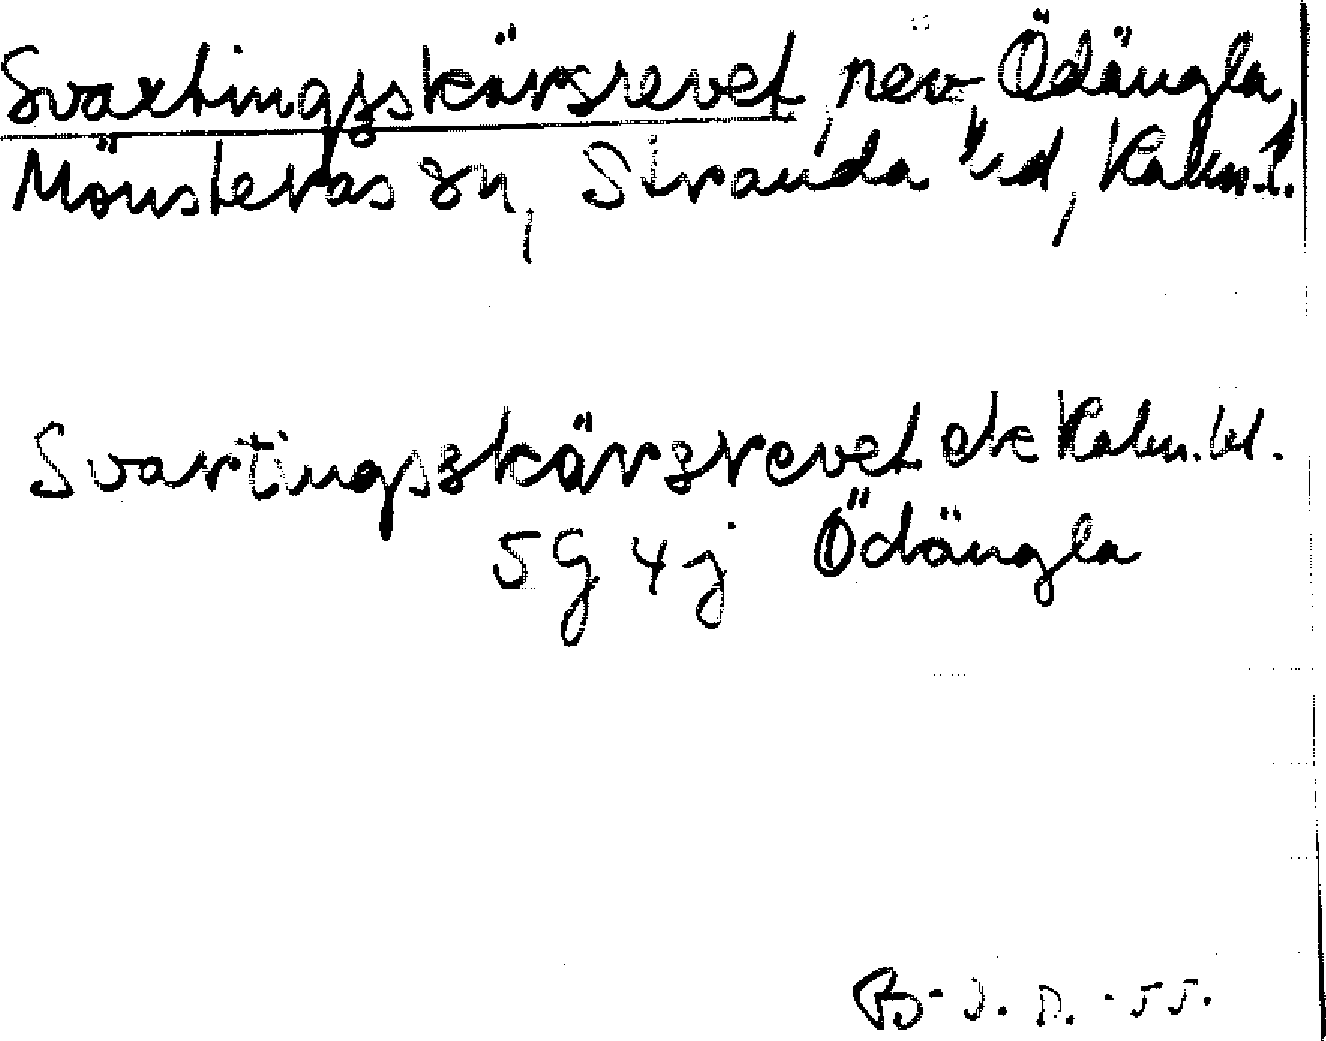 Svartingsskärsrevet, rev, Ödängla,
Mönsterås sn, Stranda hd, Kalm.l.
Svartingsskärsrevet ek Kalm.bl.
5G 4j Ödängla
B-J.D.-55.